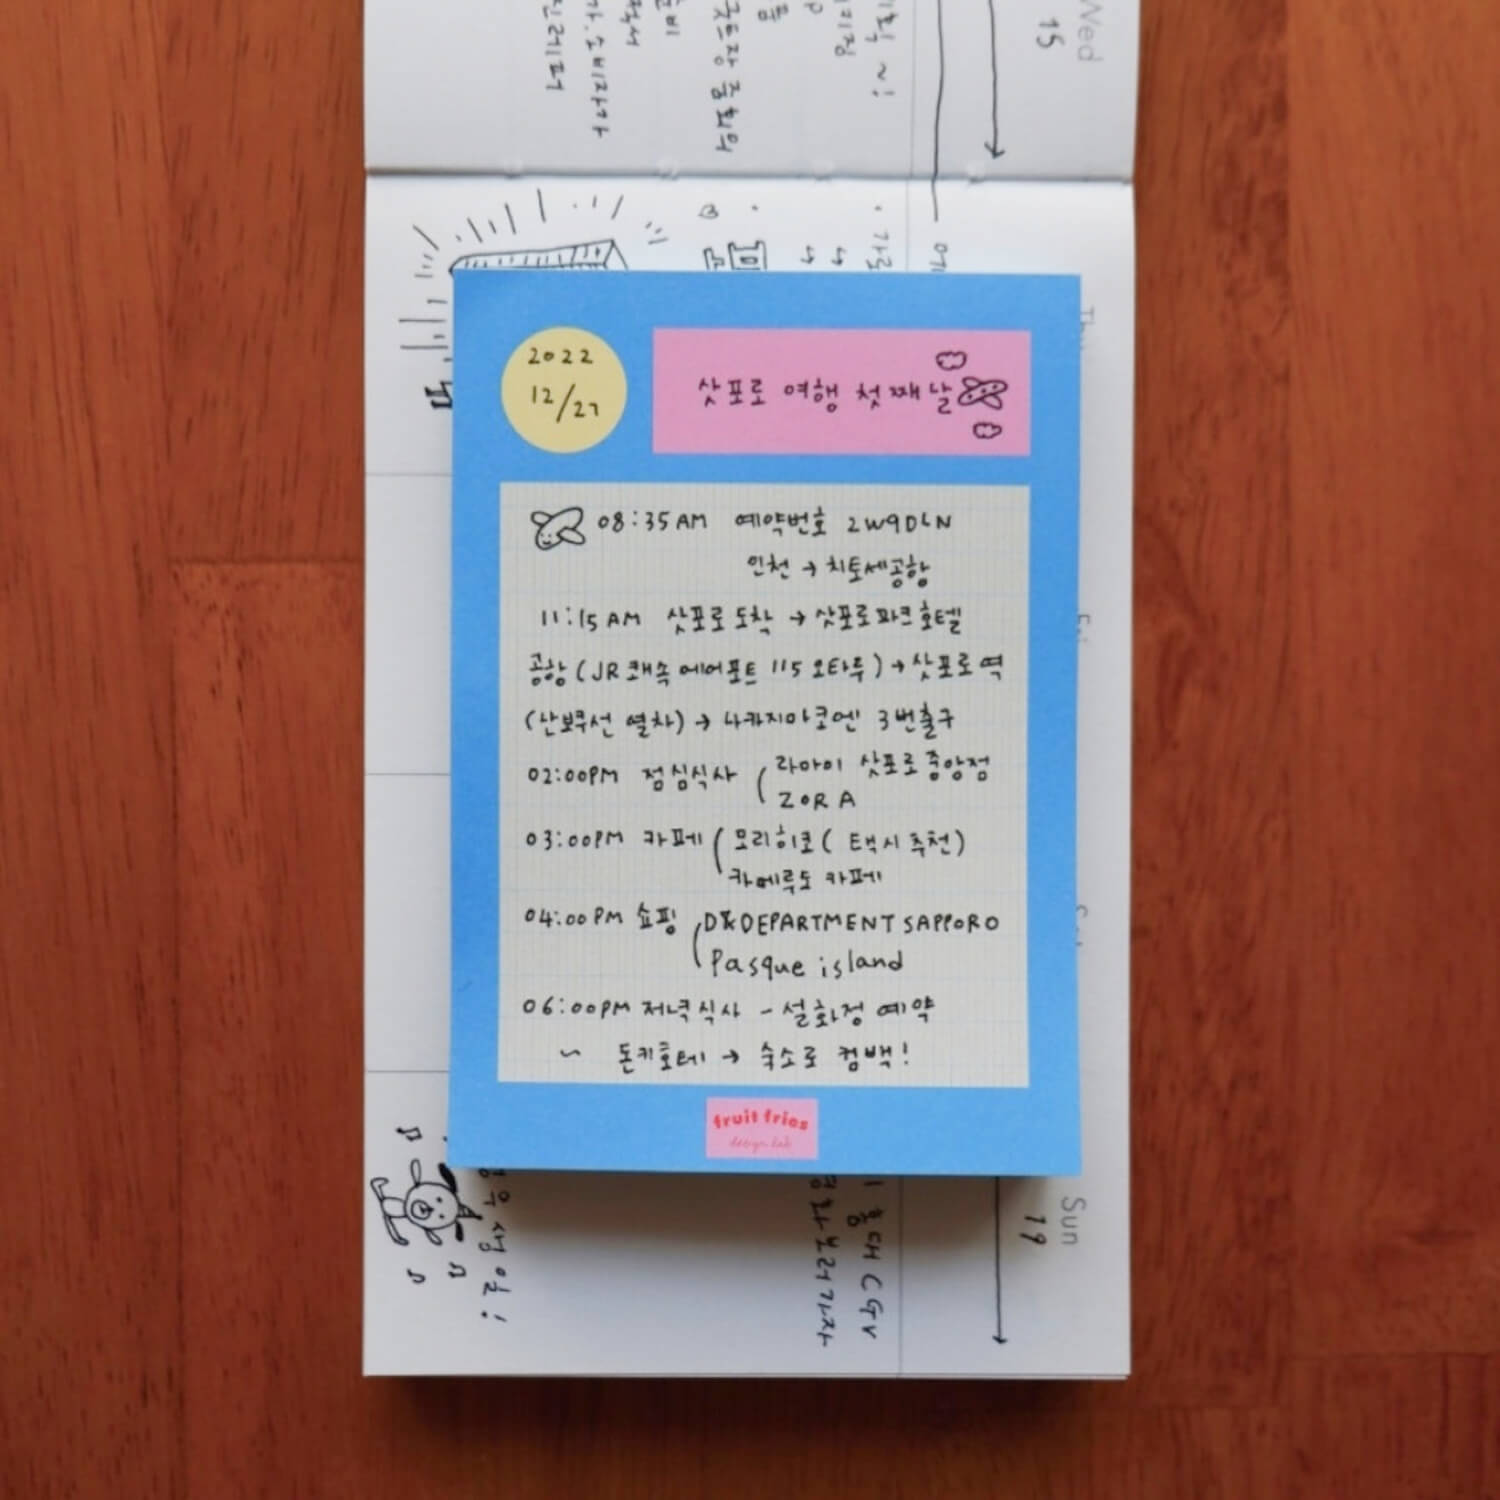 2022
12/27
삿포로 여행 첫째날
08:35AM 예약번호 2W9DLN
인천 → 치토세공항
11:15AM 삿포로 도착 → 삿포로파크호텔
공항 (JR쾌속에어포트 115 오타루) → 삿포로역
(난보쿠선 열차) → 나카지마코엔 3번출구
02:00PM 점심식사 ( 라마이 삿포로중앙점
ZORA
03:00PM 카페 ( 모리히코 ( 택시추천)
카메루도 카페
04:00PM 쇼핑 ( D&DEPARTMENT SAPPORO
Pasque island
06:00PM 저녁식사 - 설화정 예약
~ 돈키호테 → 숙소로 컴백!
fruit fries
design lab
Wed
15
국트장 줌회의
Sun
19
홍대 CGV
영화보러가자
생일!